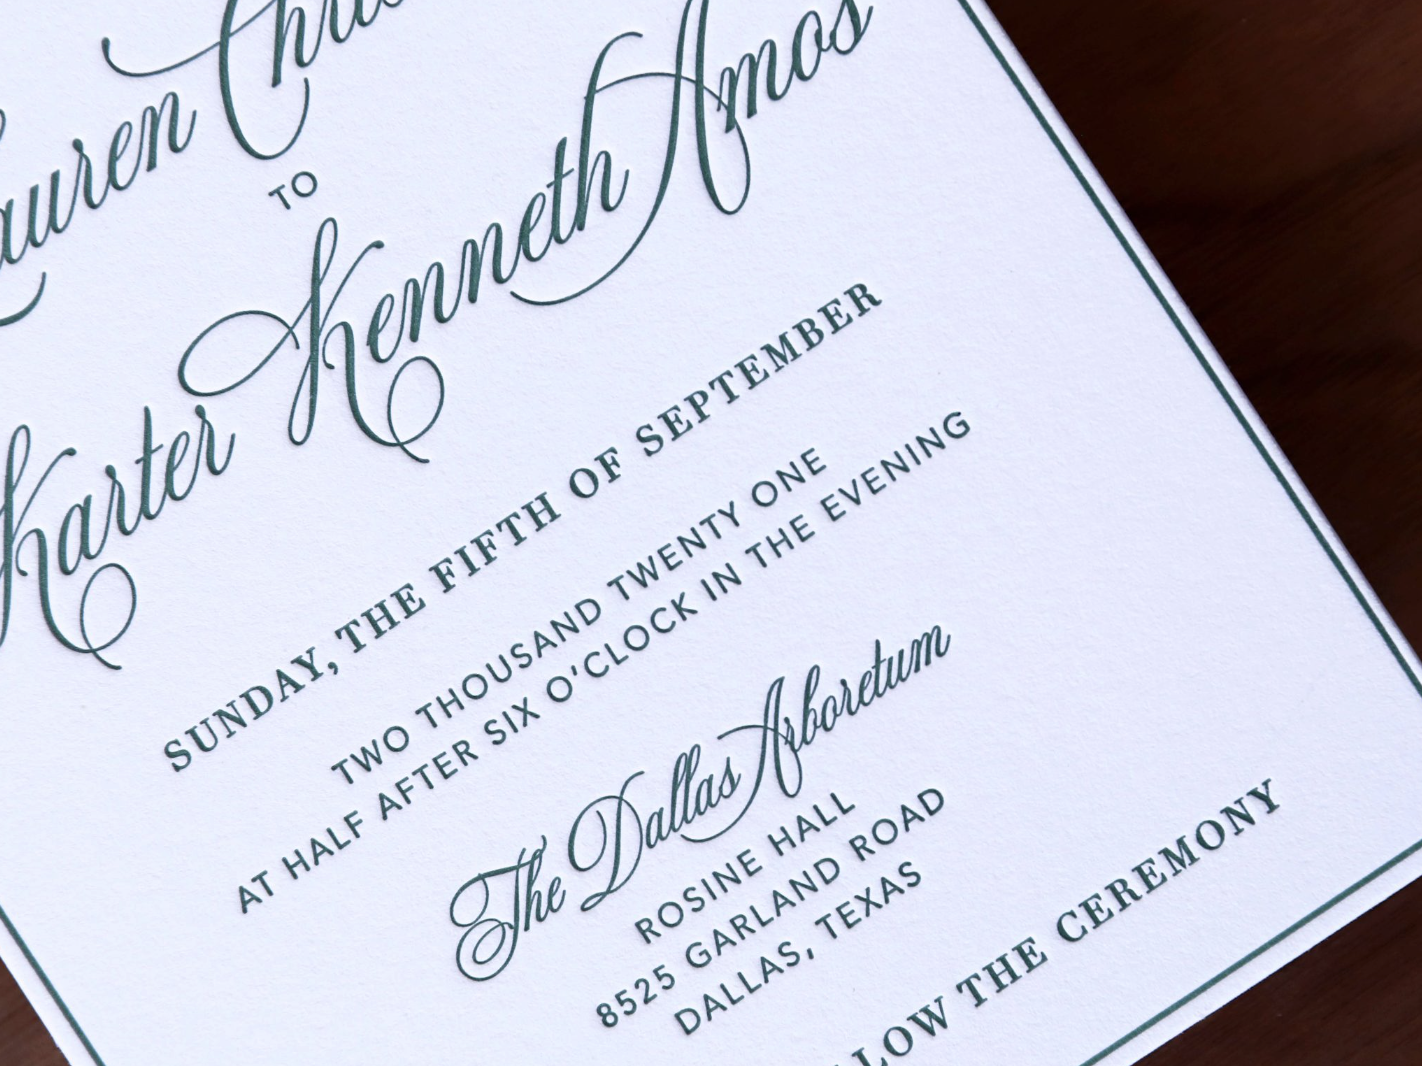 Lauren Chris
TO
Karter Kenneth Amos
SUNDAY, THE FIFTH OF SEPTEMBER
TWO THOUSAND TWENTY ONE
AT HALF AFTER SIX O'CLOCK IN THE EVENING
The Dallas Arboretum
ROSINE HALL
8525 GARLAND ROAD
DALLAS, TEXAS
LLOW THE CEREMONY